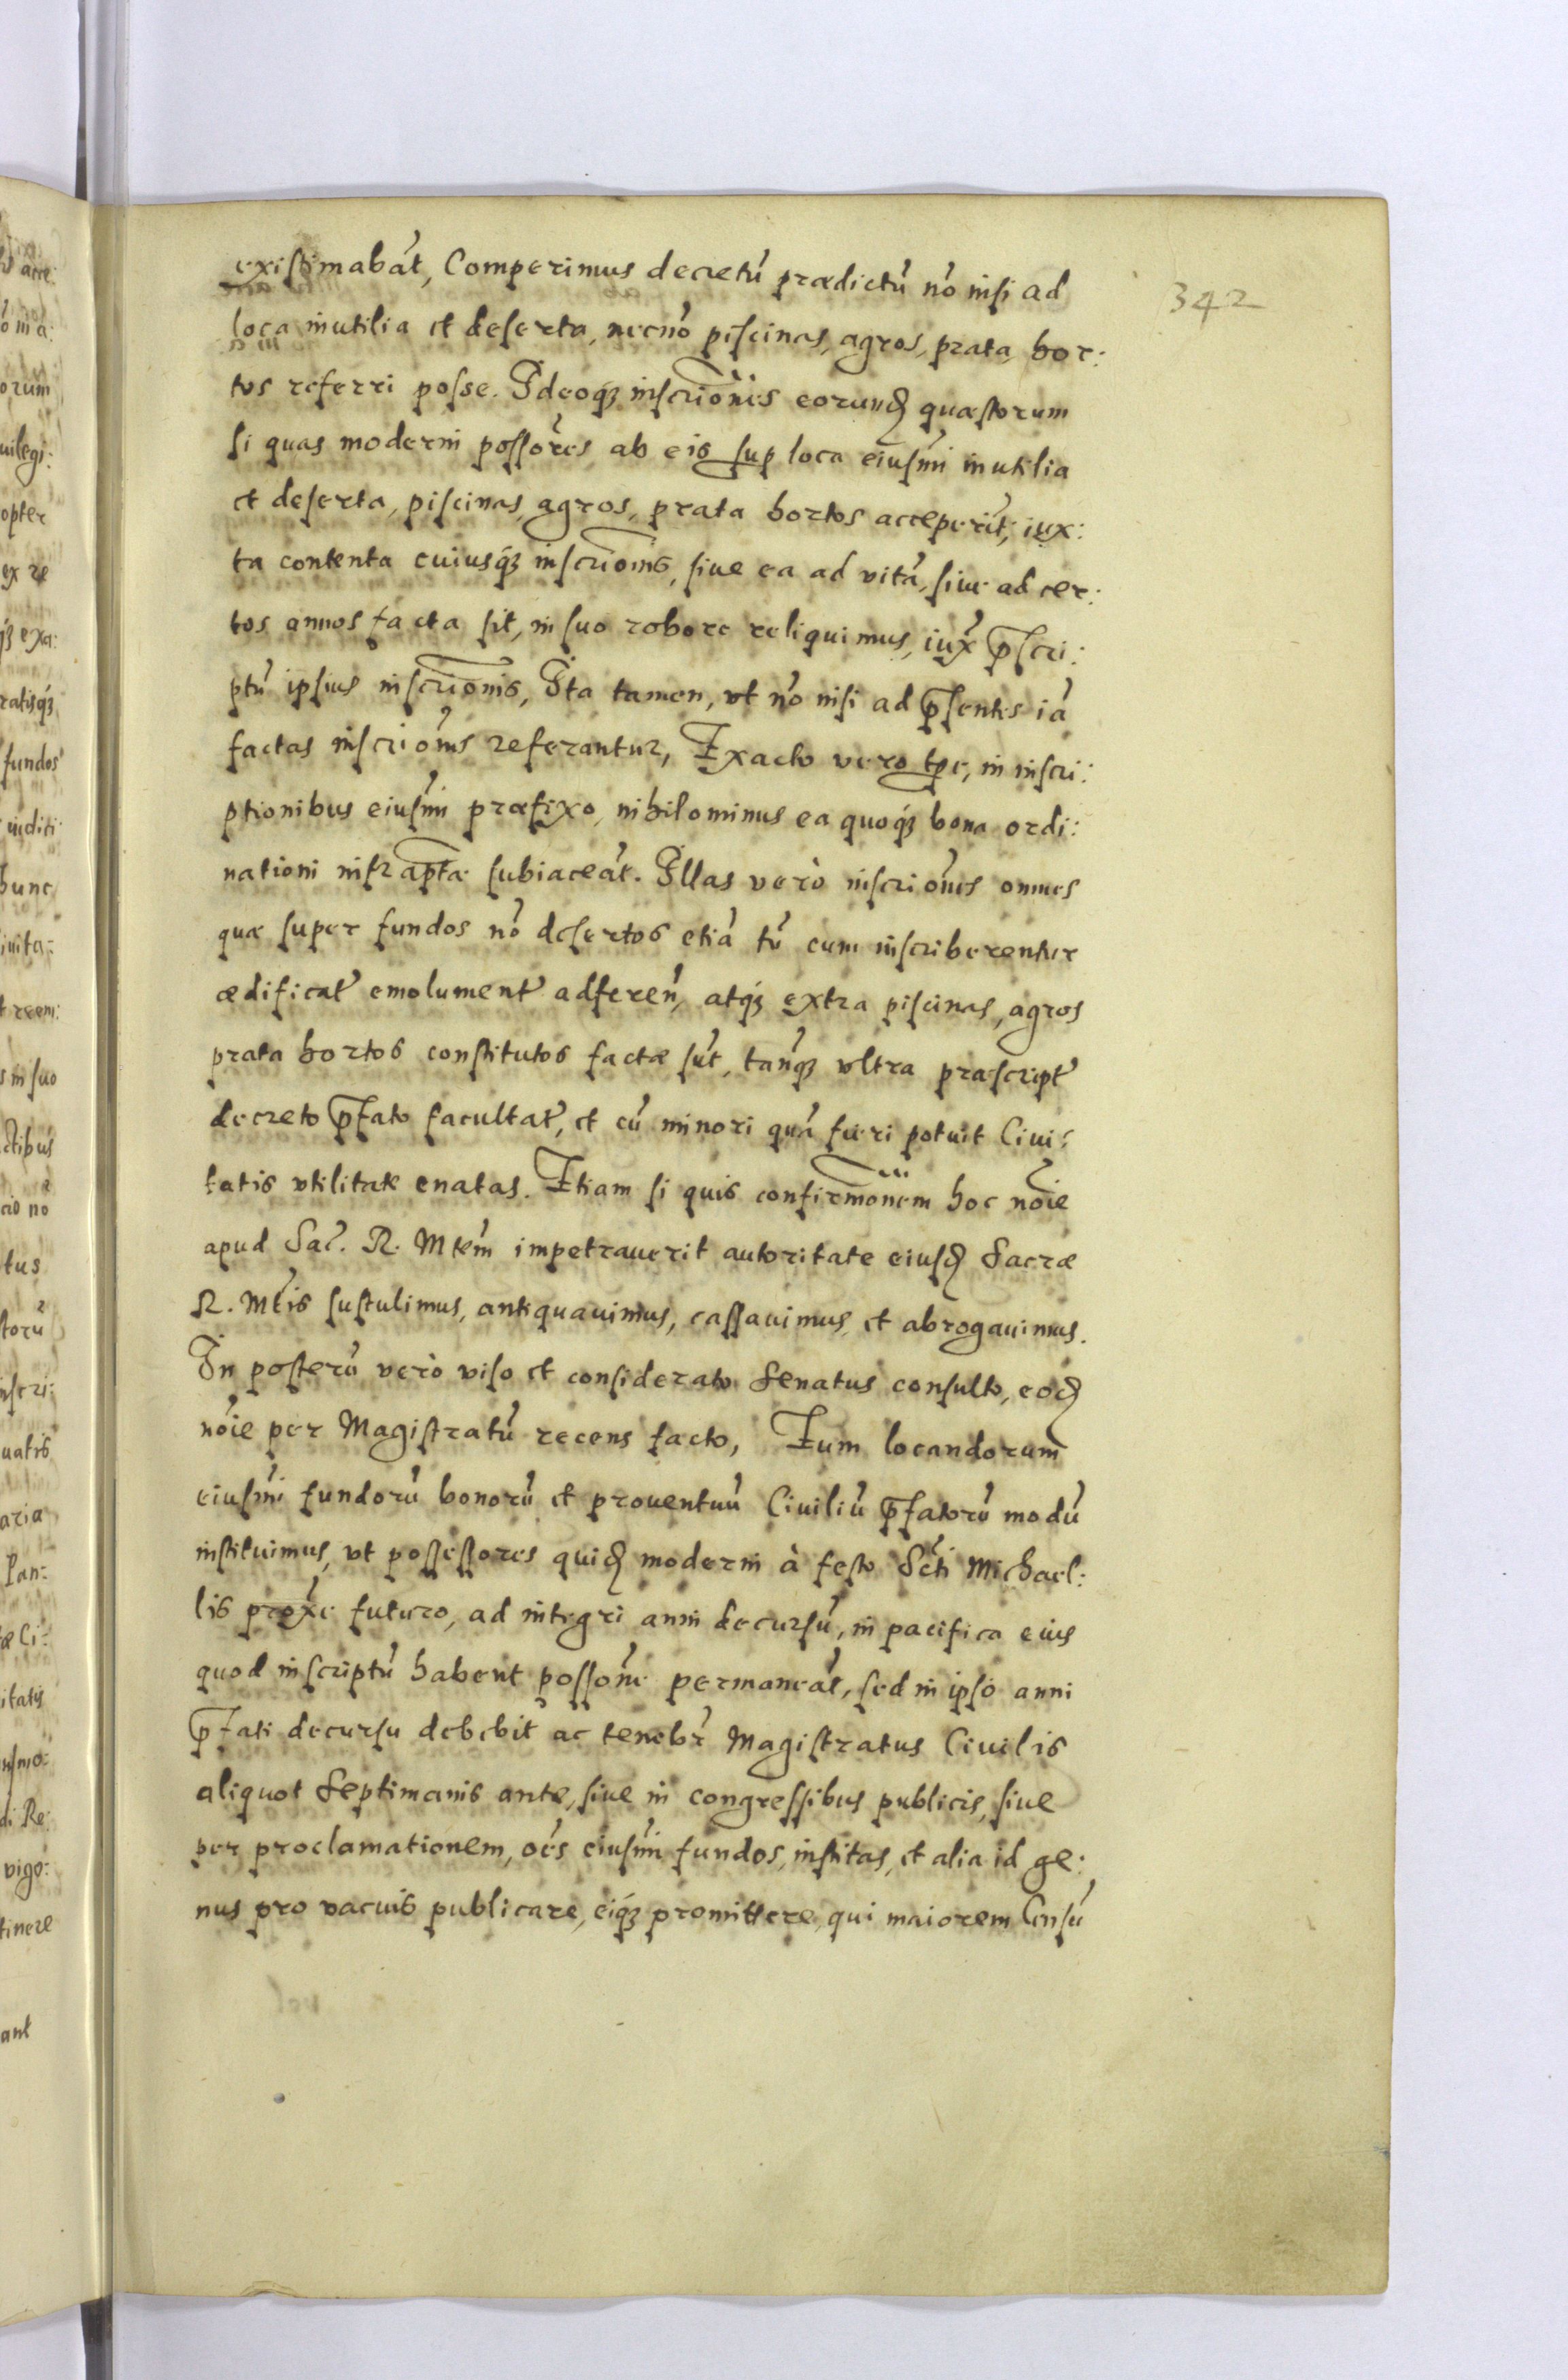 342
existimabāt, Comperimus decretū prædictū nō nisi ad
loca inutilia et deserta, necnō piscinas, agros, prata, hor:
tos referri posse. Ideoq₃ inscriōnes eorund quæstorum
si quas moderni possōres ab eis sup loca eiusmī inutilia
et deserta, piscinas, agros, prata hortos acceperūt, iux:
ta contenta cuiusq₃ inscriōnis, siue ea ad vitā, siue ad cer:
tos annos facta sit, in suo robore reliquimus, iux̄ p̄scri:
ptū ipsius inscriōnis, Ita tamen, vt nō nisi ad p̄sentes iā
factas inscriōnis referantur, Exacto vero tpe, in inscri:
ptionibus eiusmī præfixo, nihilominus ea quoq₃ bona ordi:
nationi infrap̄tæ subiaceāt. Illas verò inscriōnes omnes
quæ super fundos nō desertos etiā tū cum inscriberentur
ædificat emolument adferen, atq₃ extra piscinas, agros
prata hortos constitutos factæ sūt, tanq₃ vltra præscript
decreto p̄fato facultat, et cū minori quā fieri potuit Ciui:
tatis vtilitate enatas. Etiam si quis confirmōnem hoc nōie
apud Sac. R. Mtem impetrauerit autoritate eiusd Sacræ
R. Mtis sustulimus, antiquauimus, cassauimus, et abrogauimus.
In posterū verò viso et considerato Senatus consulto, eod
nōie per Magistratū recens facto, Eum locandorum
eiusmī fundorū bonorū et prouentuū Ciuiliū p̄fatorū modū
instituimus, vt possessores quid moderni à festo Scti Michael:
lis proxe futuro, ad integri anni decursū, in pacifica eius
quod inscriptū habent possōne permaneāt, sed in ipso anni
p̄fati decursu debebit ac tenebr Magistratus Ciuilis
aliquot Septimanis ante, siue in congressibus publicis, siue
per proclamationem, oēs eiusmī fundos, institas, et alia id ge:
nus pro vacuis publicare, eiq₃ promittere, qui maiorem Censū